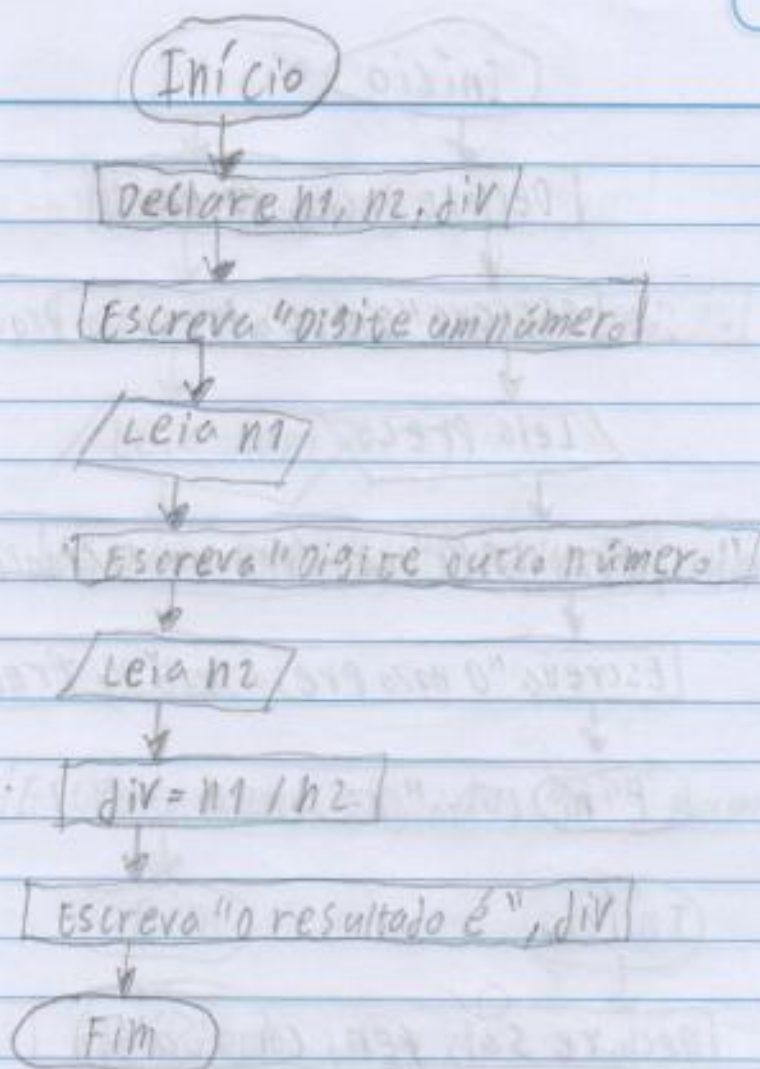 Início
Declare n1, n2, div
Escreva "Digite um número
Leia n1
Escreva "Digite outro número"
Leia n2
div = n1 / n2
Escreva "o resultado é", div
Fim